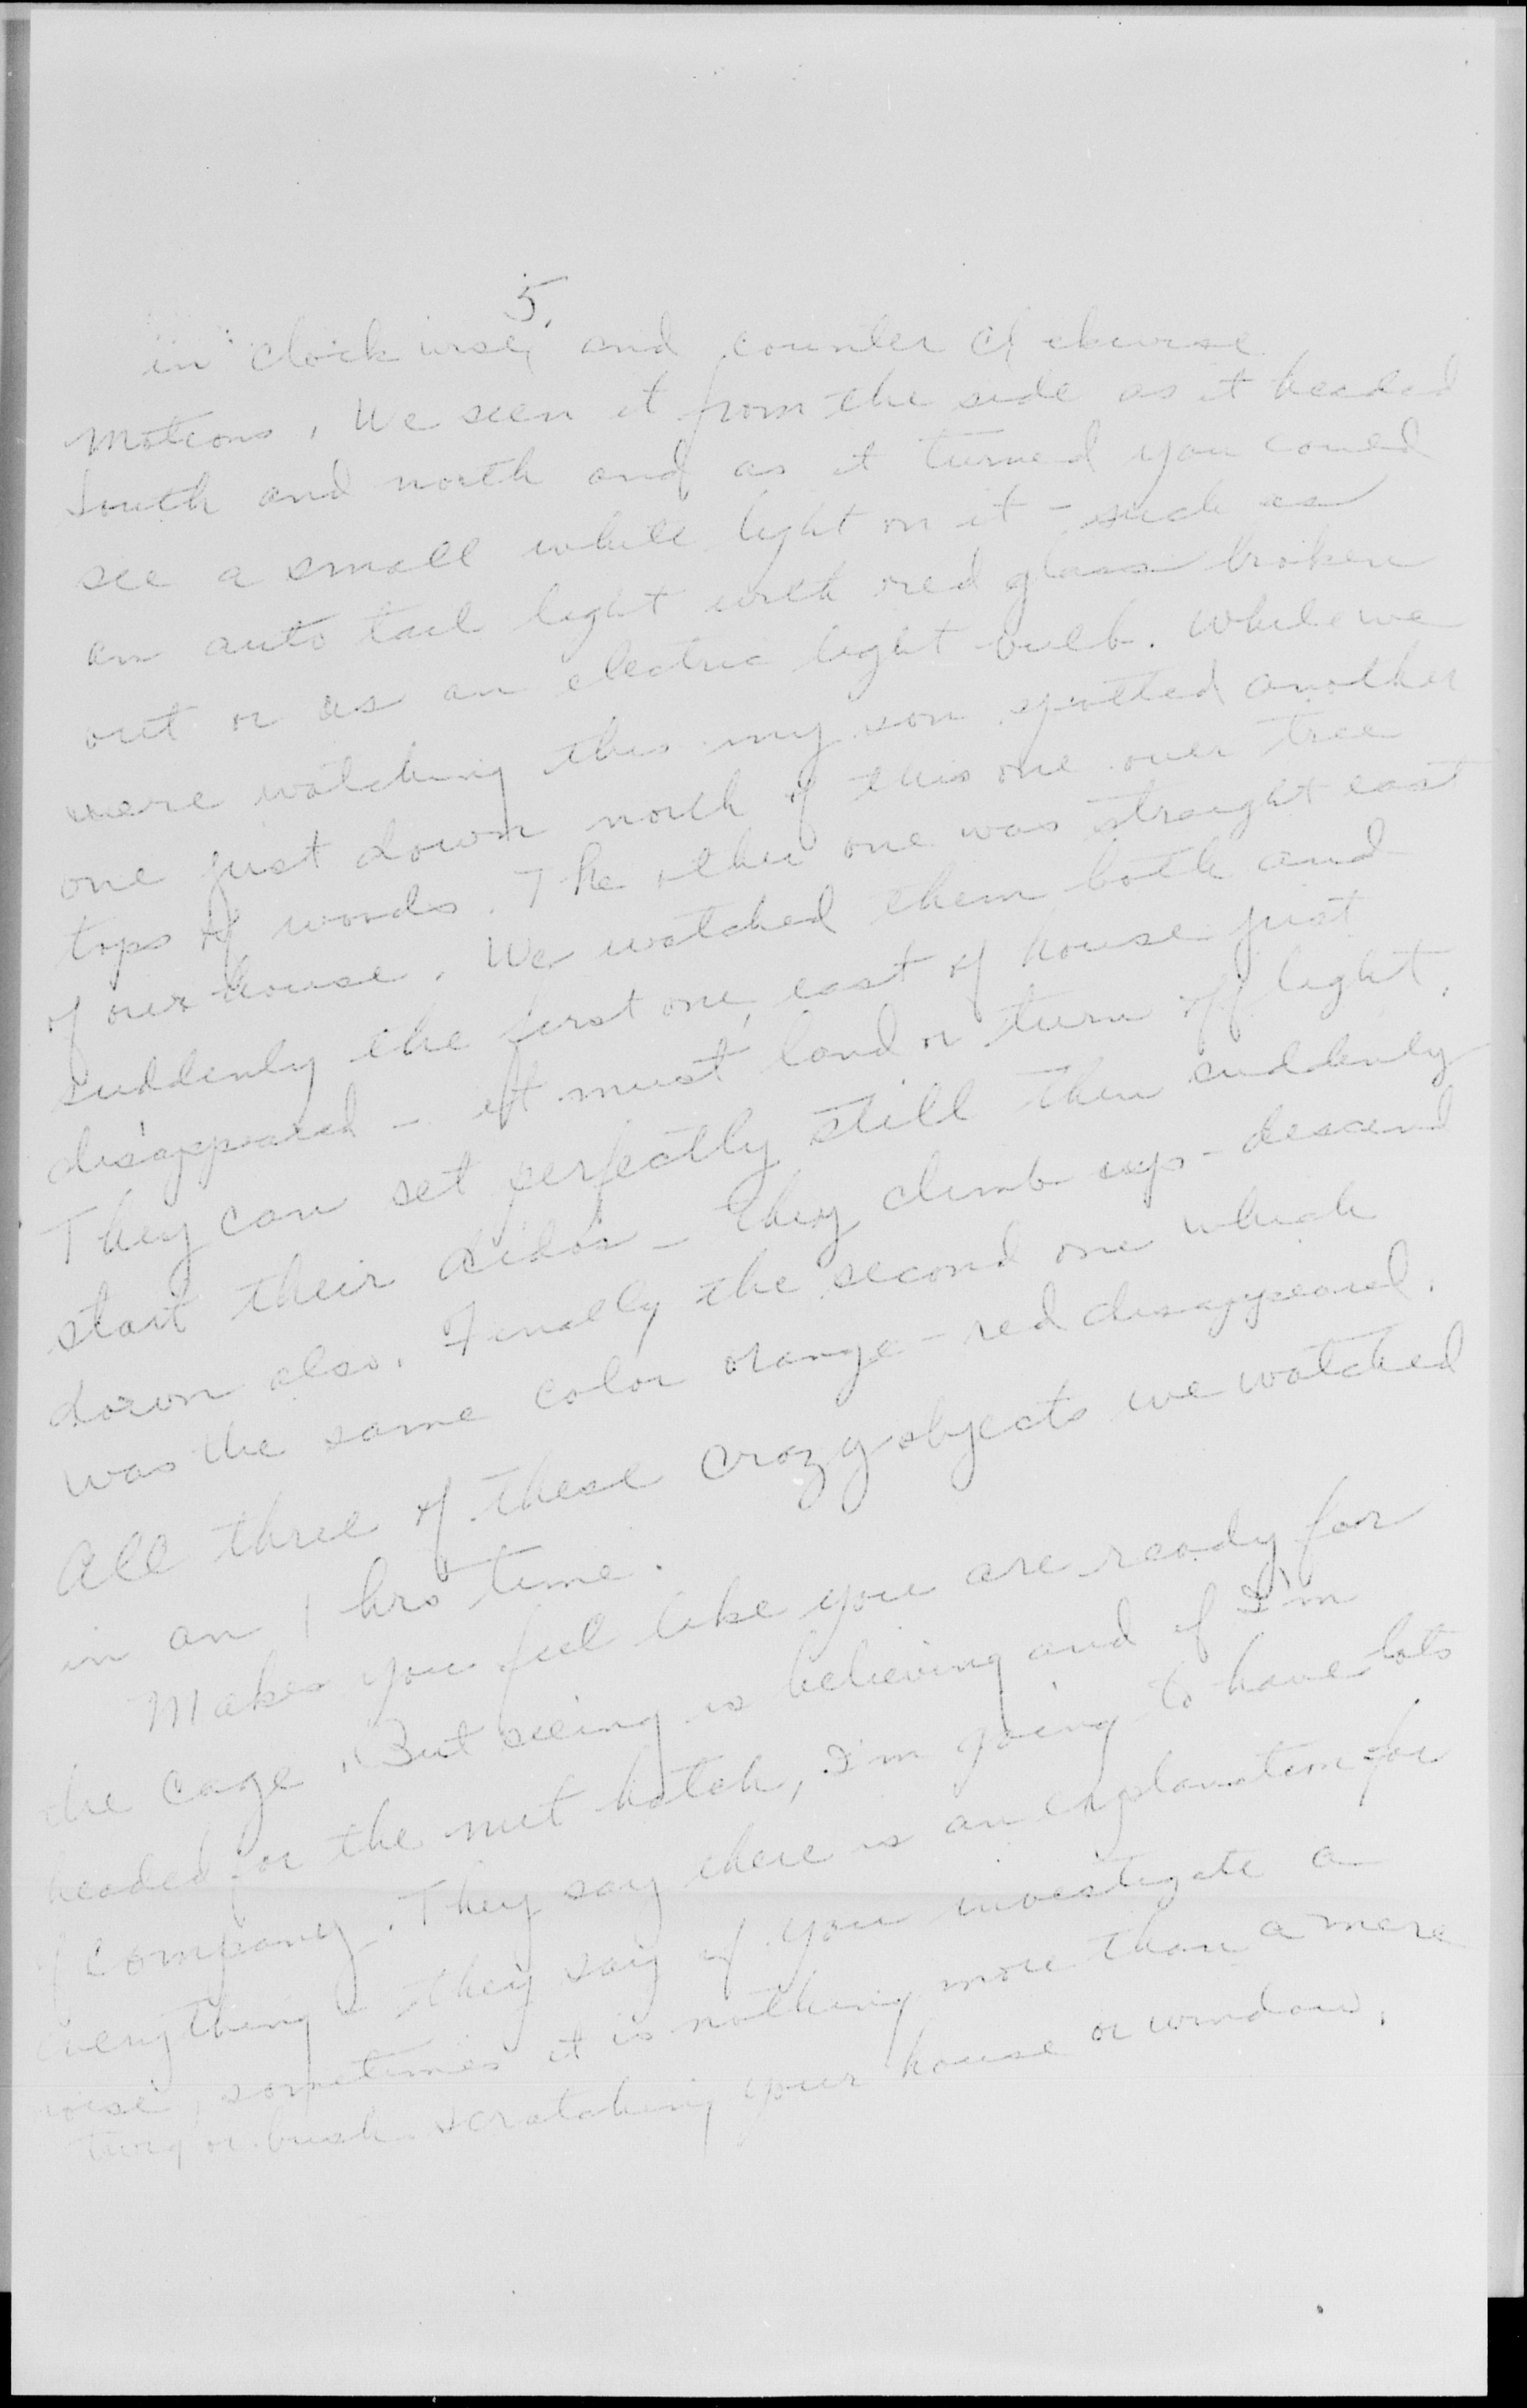 5.
in clock wise, and counter clckwise
motions. We seen it from the side as it headed
South and north and as it turned you could
see a small white light on it - such as
an auto tail light with red glass broken
out or as an electric light bulb. While we
were watching this my son spotted another
one just down north of this one over tree
tops of woods. The other one was straight east
of our house. We watched them both and
suddenly the first one, east of house just
disappeared - it must land or turn off light.
They can set perfectly still then suddenly
start their dido's - They climb up - descend
down also. Finally the second one which
was the same color orange - red disappeared.
All three of these crazy objects we watched
in an 1 hrs time.
Makes you feel like you are ready for
the cage. But seeing is believing and if I'm
headed for the nut hatch, I'm going to have lots
of company. They say there is an explanation for
everything - they say if you investigate a
noise, sometimes it is nothing more than a mere
twig or bush scratching your house or window.